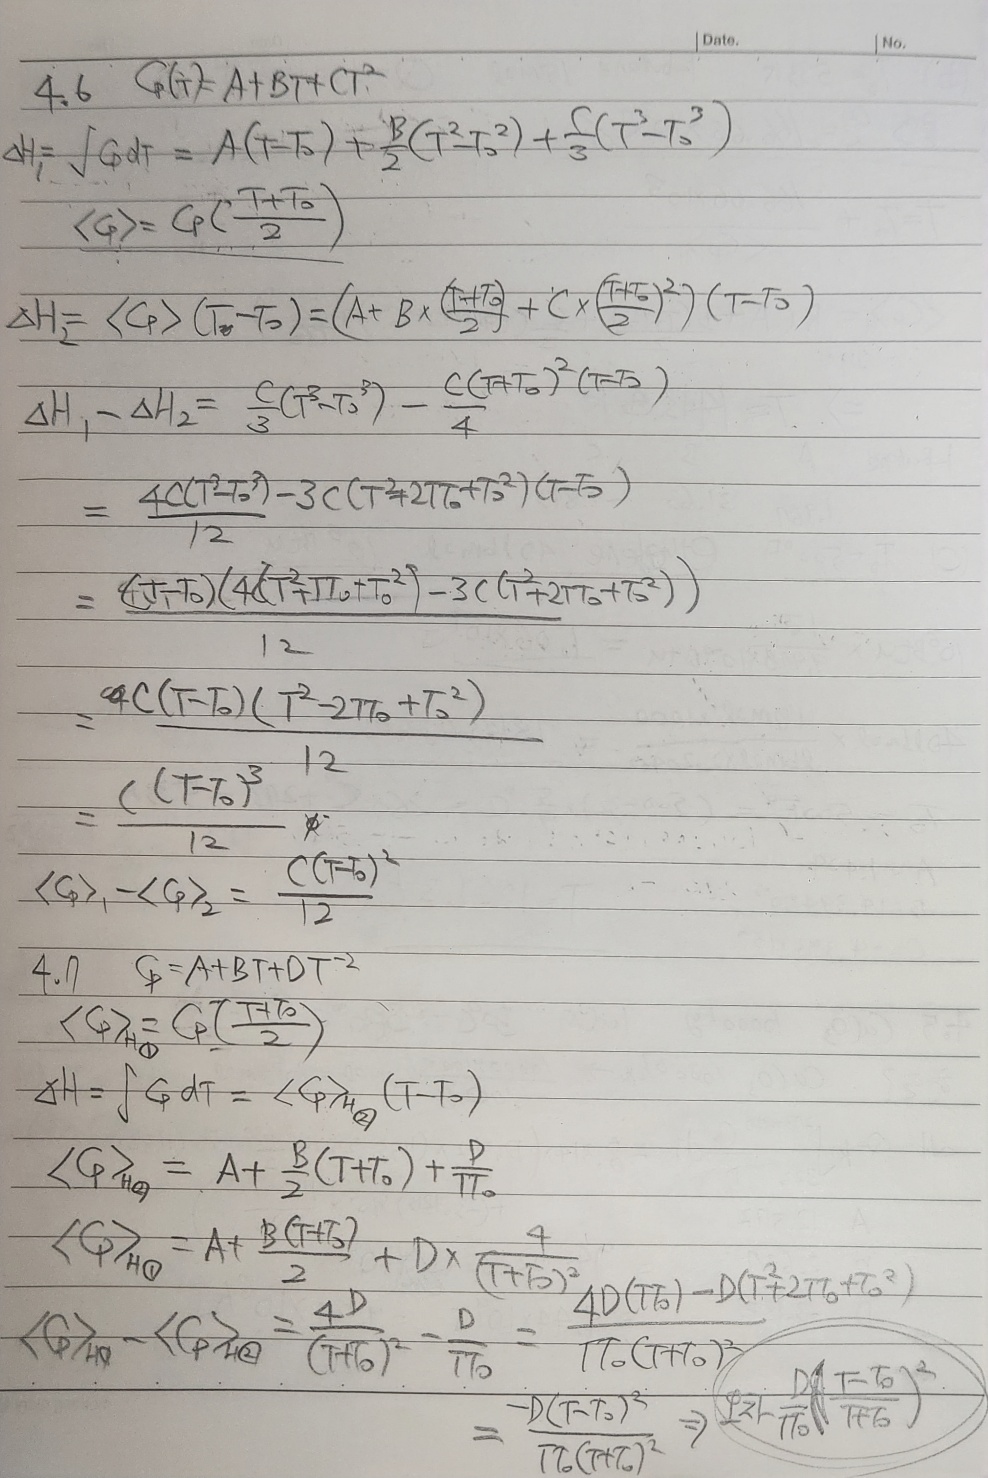 Date. No.
4.6 Cp(T)= A+BT+CT²
ΔH₁= ∫CpdT = A(T-T₀) + B/2(T²-T₀²) + C/3(T³-T₀³)
<Cp>= Cp((T+T₀)/2)
ΔH₂= <Cp>(T-T₀)=(A+ B×(T+T₀)/2 + C×((T+T₀)/2)²)(T-T₀)
ΔH₁-ΔH₂= C/3(T³-T₀³) - C(T+T₀)²(T-T₀)/4
= (4C(T³-T₀³)-3C(T²+2TT₀+T₀²)(T-T₀))/12
= (T-T₀)(4C(T²+TT₀+T₀²)-3C(T²+2TT₀+T₀²))/12
= C(T-T₀)(T²-2TT₀+T₀²)/12
= C(T-T₀)³/12
<Cp>₁-<Cp>₂ = C(T-T₀)²/12
4.7 Cp=A+BT+DT⁻²
<Cp>H① = Cp((T+T₀)/2)
ΔH = ∫CpdT = <Cp>H②(T-T₀)
<Cp>H② = A+ B/2(T+T₀) + D/TT₀
<Cp>H① = A+ B(T+T₀)/2 + D× 4/(T+T₀)²
<Cp>H① - <Cp>H② = 4D/(T+T₀)² - D/TT₀ = (4D(TT₀)-D(T²+2TT₀+T₀²))/TT₀(T+T₀)²
= -D(T-T₀)²/TT₀(T+T₀)² ⇒ 오차 D/TT₀((T-T₀)/(T+T₀))²